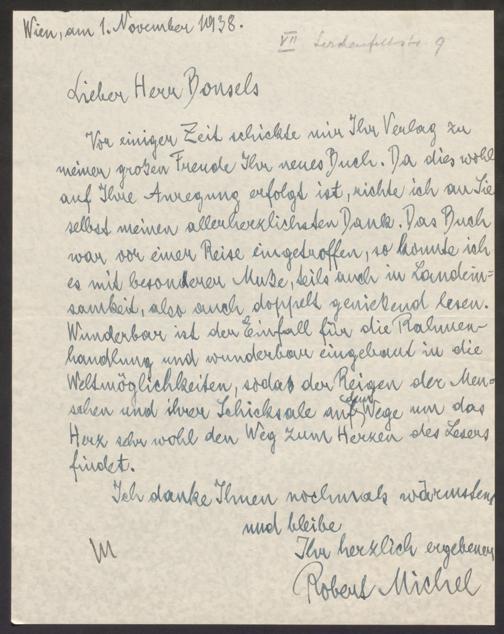 Wien, am 1. November 1938.
VII Lerchenfelderstr. 9
Lieber Herr Bonsels
Vor einiger Zeit schickte mir Ihr Verlag zu
meiner großen Freude Ihr neues Buch. Da dies wohl
auf Ihre Anregung erfolgt ist, richte ich an Sie
selbst meinen allerherzlichsten Dank. Das Buch
war vor einer Reise eingetroffen, so konnte ich
es mit besonderer Muße, teils auch in Landein-
samkeit, also auch doppelt genießend lesen.
Wunderbar ist der Einfall für die Rahmen-
handlung und wunderbar eingebaut in die
Weltmöglichkeiten, sodaß der Reigen der Men-
schen und ihrer Schicksale auf Wege um das
Herz sehr wohl den Weg zum Herzen des Lesers
findet.
Ich danke Ihnen nochmals wärmstens
und bleibe
Ihr herzlich ergebener
Robert Michel